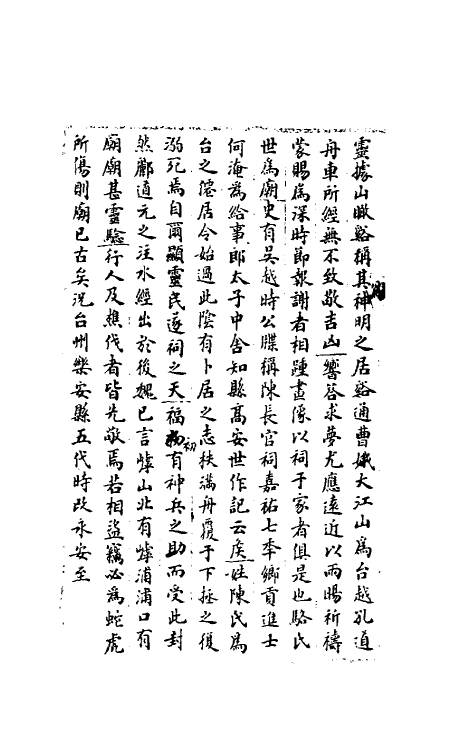 靈據山瞰谿稱其神明之居谿通曹娥大江山爲台越孔道
舟車所經無不致敬吉凶響荅求夢尤應遠近以雨暘祈禱
蒙賜爲深時節報謝者相踵畫像以祠于家者俱是也駱氏
世爲廟史有吳越時公牒稱陳長官祠嘉祐七季鄉貢進士
何淹爲給事郎太子中舍知縣髙安世作記云矦姓陳氏爲
台之僊居令始過此陰有卜居之志秩滿舟覆于下拯之復
溺死焉自爾顯靈民遂祠之天福初有神兵之助而受此封
然酈道元之注水經出於後魏已言嶀山北有嶀浦浦口有
廟廟甚靈驗行人及樵伐者皆先敬焉若相盜竊必爲蛇虎
所傷則廟已古矣況台州樂安縣五代時改永安至